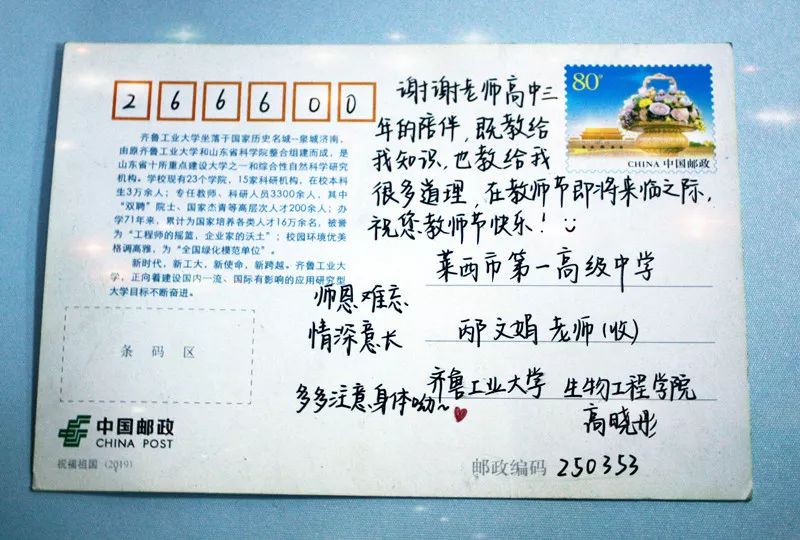 266600
谢谢老师高中三
年的陪伴，既教给
我知识，也教给我
很多道理，在教师节即将来临之际，
祝您教师节快乐！
80分
CHINA 中国邮政
齐鲁工业大学坐落于国家历史名城--泉城济南，
由原齐鲁工业大学和山东省科学院整合组建而成，是
山东省十所重点建设大学之一和综合性自然科学研究
机构。学校现有23个学院，15家科研机构，在校本科
生3万余人；专任教师、科研人员3300余人，其中
“双聘”院士、国家杰青等高层次人才200余人；办
学71年来，累计为国家培养各类人才16万余名，被誉
为“工程师的摇篮，企业家的沃土”；校园环境优美
格调高雅，为“全国绿化模范单位”。
新时代，新工大，新使命，新跨越。齐鲁工业大
学，正向着建设国内一流、国际有影响的应用研究型
大学目标不断奋进。
莱西市第一高级中学
师恩难忘
情深意长
邴文娟老师（收）
条码区
多多注意身体呦~
齐鲁工业大学 生物工程学院
高晓彤
中国邮政
CHINA POST
祝福祖国 (2019)
邮政编码 250353